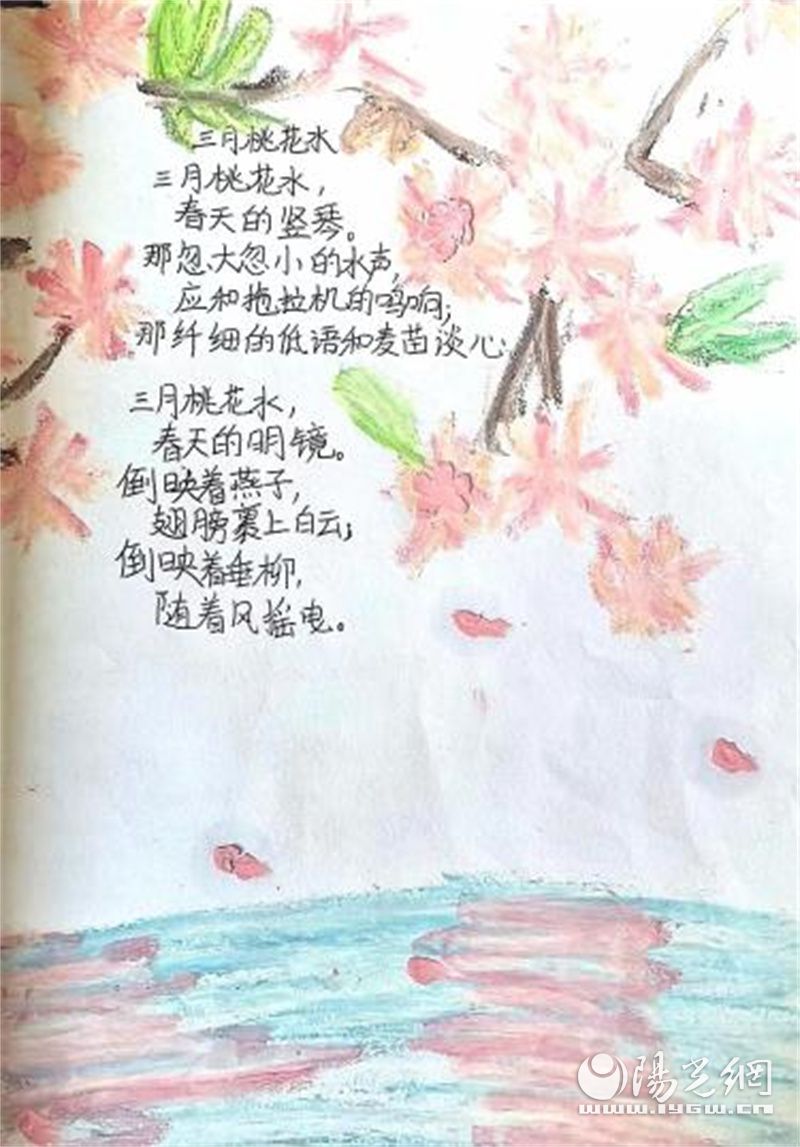 三月桃花水
三月桃花水，
春天的竖琴。
那忽大忽小的水声，
应和拖拉机的鸣响；
那纤细的低语和麦苗谈心；
三月桃花水，
春天的明镜。
倒映着燕子，
翅膀裹上白云；
倒映着垂柳，
随着风摇电。
陽光網
www.iygw.cn